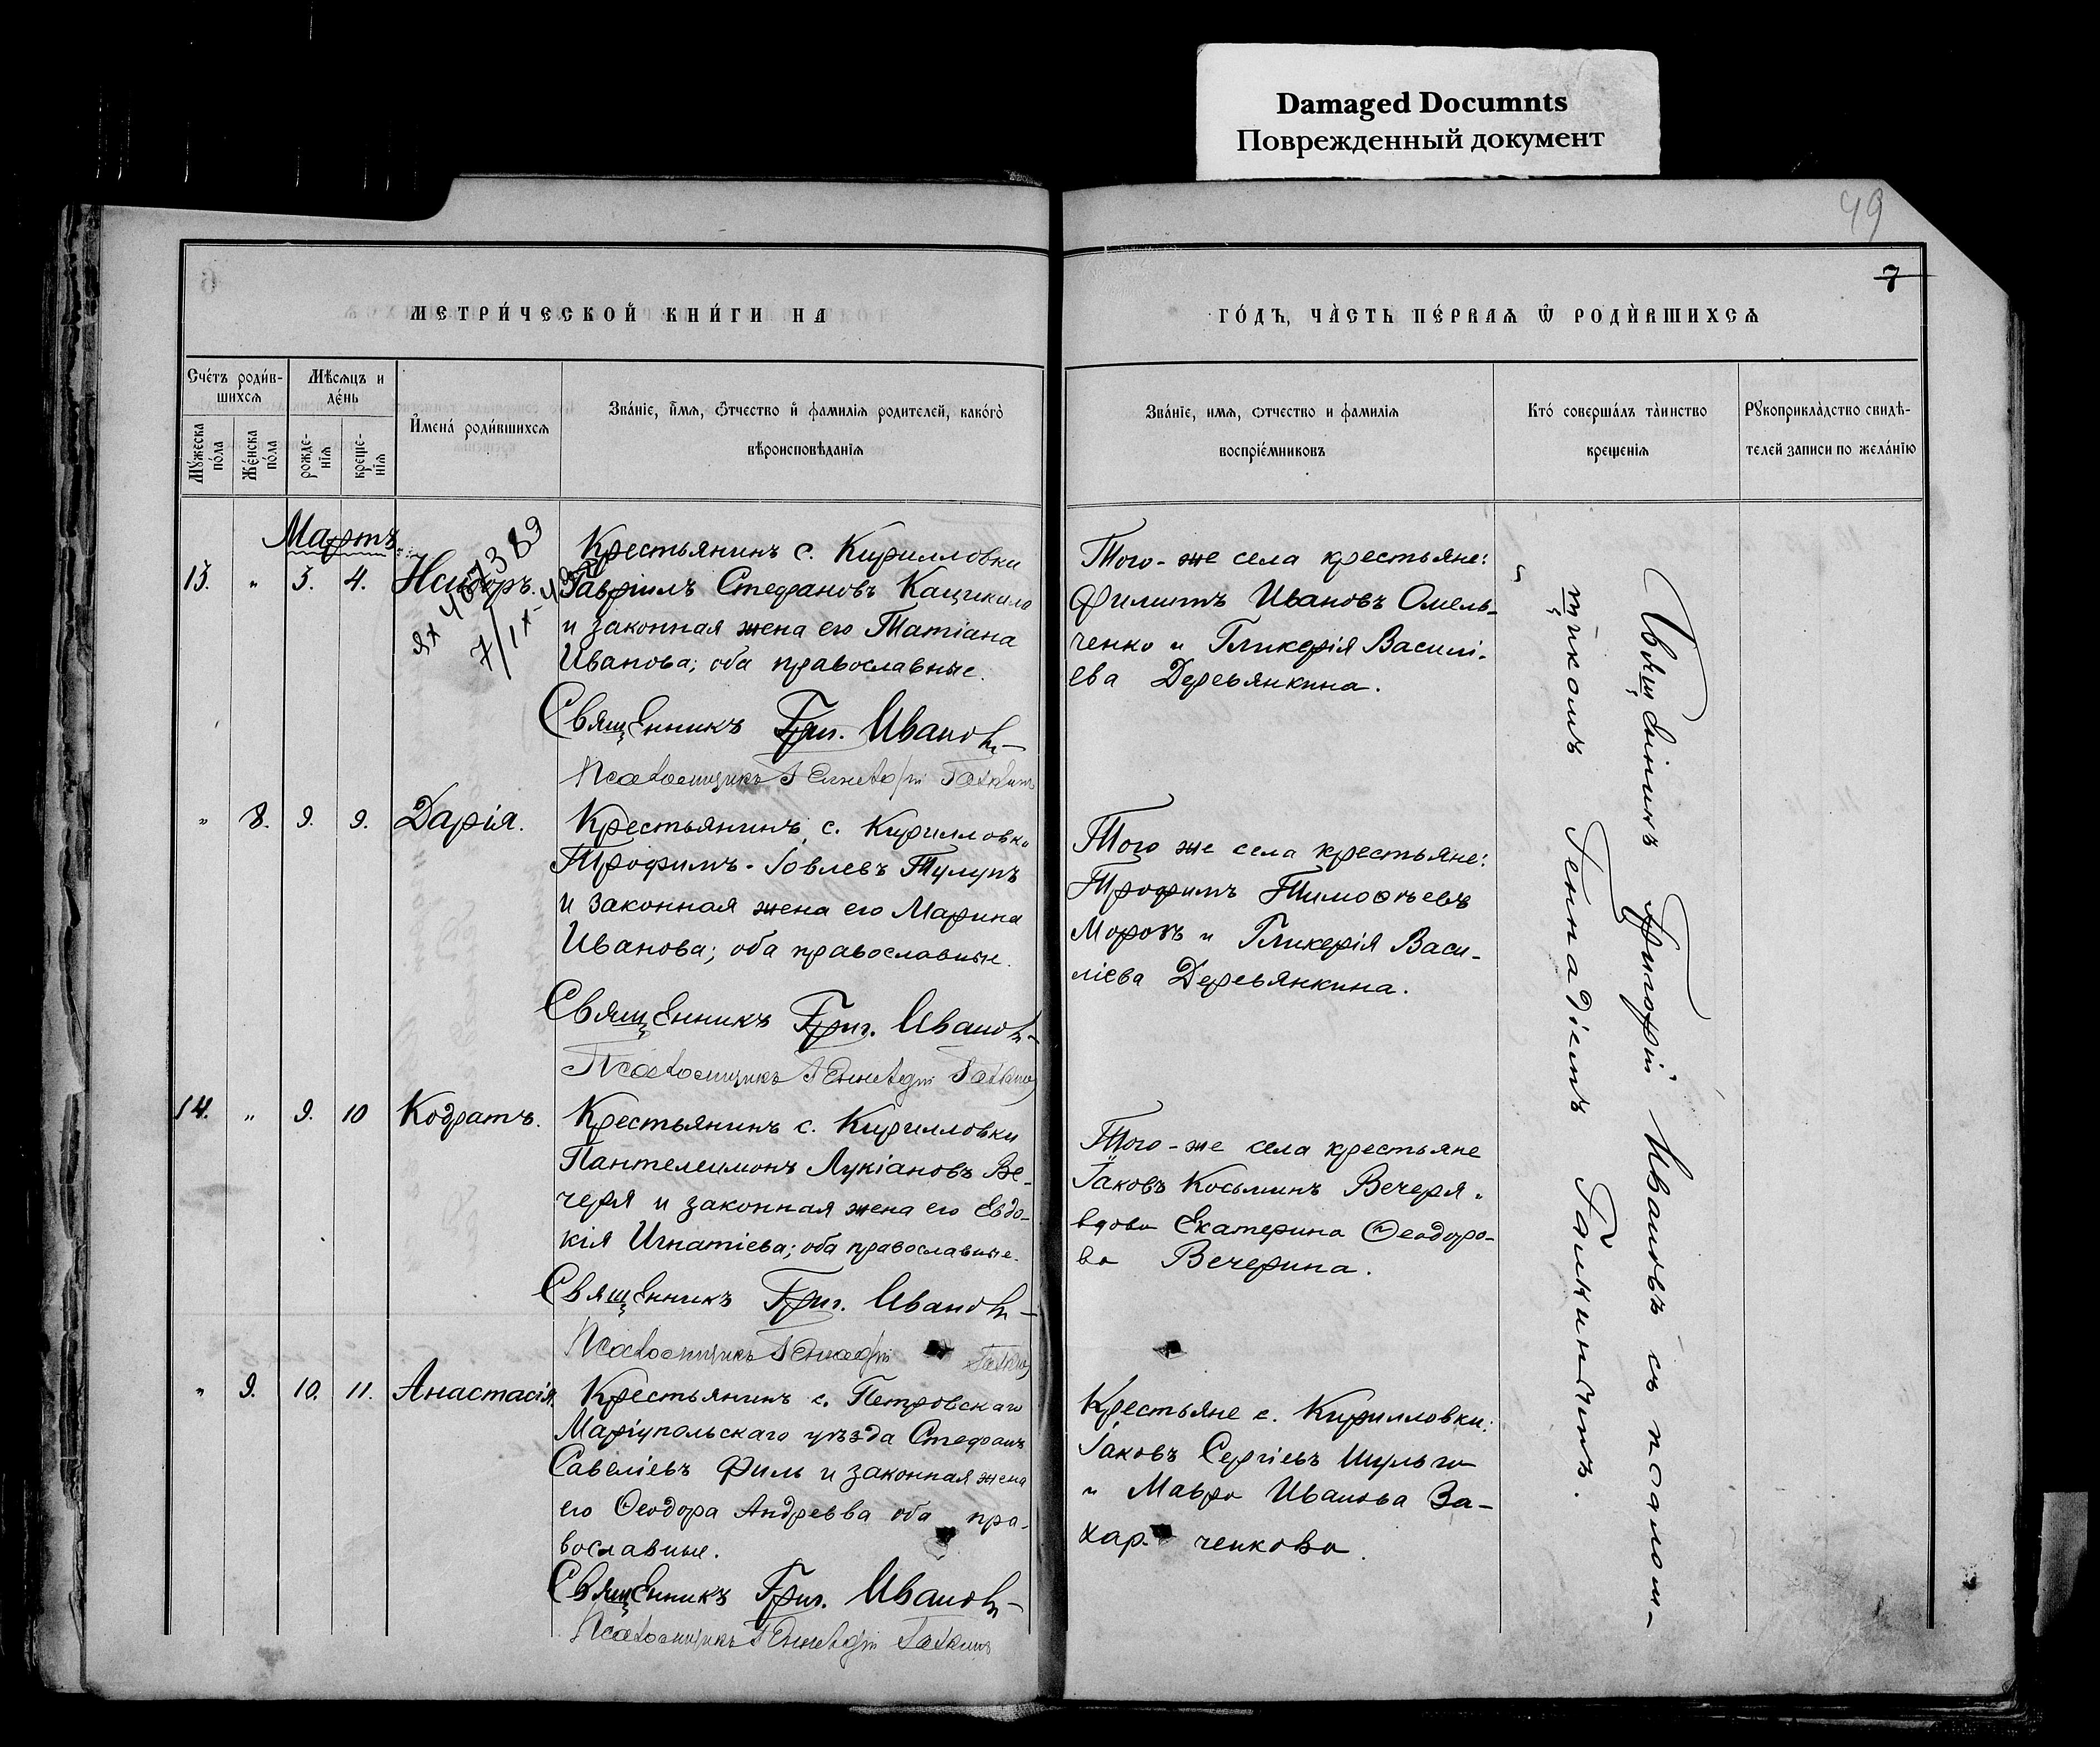 Damaged Documnts
Поврежденный документ
49
7
МЕТРИ́ЧЕСКОЙ КНИ́ГИ НА
ГО́ДЪ, ЧА́СТЬ ПЕ́РВАѦ Ѿ РОДИ́ВШИХСѦ
Сче́тъ роди́в-
шихсѧ
Мѣсѧцъ и
де́нь
Мꙋжеска
по́ла
Же́нска
по́ла
рожде-
нїѧ
креще-
нїѧ
И́мена́ роди́вшихсѧ
Зва́нїе, и́мѧ, ѻ́тчество и́ фамилїѧ родителей, како́гѡ
вѣроисповѣданїѧ
Зва́нїе, имѧ, ѻтчество и фамилїѧ
воспрїе́мниковъ
Кто́ соверша́лъ та́инство
крещенїѧ
Рꙋкоприкла́дство свидѣ-
телей записи по жела́нїю
Мартъ
13.
"
3.
4.
Исидоръ.
Крестьянинъ с. Кирилловки
Гавріилъ Стефановъ Кацикало
и законная жена его Татіана
Иванова; оба православные.
Священникъ Григ. Ивановъ
Псаломщикъ Геннадій Галкинъ
Того-же села крестьяне:
Филиппъ Ивановъ Омель-
ченко и Гликерія Василі-
ева Деревянкина.
"
8.
9.
9.
Дарія.
Крестьянинъ с. Кирилловки
Трофимъ Іовлевъ Тулупъ
и законная жена его Марина
Иванова; оба православные.
Священникъ Григ. Ивановъ
Псаломщикъ Геннадій Галкинъ
Того же села крестьяне:
Трофимъ Тимоѳѣевъ
Морозъ и Гликерія Васи-
ліева Деревянкина.
14.
"
9.
10
Кодратъ.
Крестьянинъ с. Кирилловки
Пантелеимонъ Лукіановъ Ве-
черя и законная жена его Евдо-
кія Игнатіева; оба православные.
Священникъ Григ. Ивановъ
Псаломщикъ Геннадій Галкинъ
Того-же села крестьяне
Іаковъ Косьминъ Вечеря и
вдова Екатерина Ѳеодоро-
ва Вечерина.
"
9.
10.
11.
Анастасія.
Крестьянинъ с. Петровскаго
Маріупольскаго уѣзда Стефанъ
Савеліевъ Филь и законная жена
его Ѳеодора Андреева оба пра-
вославные.
Священникъ Григ. Ивановъ
Псаломщикъ Геннадій Галкинъ
Крестьяне с. Кирилловки:
Іаковъ Сергіевъ Шульга
и Мавра Иванова За-
хар-ченкова.
Священникъ Григорій Ивановъ съ псалом-
щикомъ Геннадіемъ Галкинымъ.